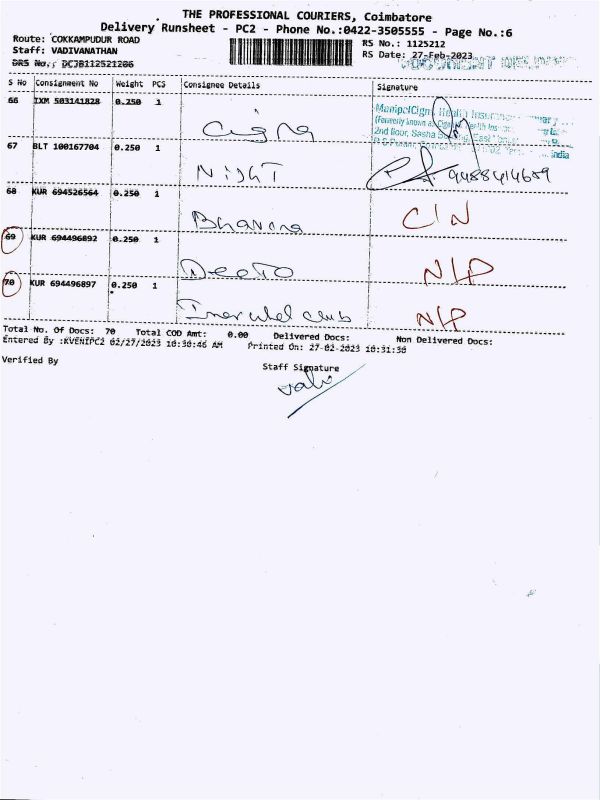 THE PROFESSIONAL COURIERS, Coimbatore
Delivery Runsheet - PC2 - Phone No.:0422-3505555 - Page No.:6
Route: COKKAMPUDUR ROAD
RS No.: 1125212
Staff: VADIVANATHAN
RS Date: 27-Feb-2023
DRS No.: DCJB112521206
DOCUMENT
S No Consignment No Weight PCS Consignee Details Signature
66 IXM 503141828 0.250 1
Cigna
ManipalCigna Health Insurance
(formerly known as Cigna Health Ins
2nd floor, Sasha
India
67 BLT 100167704 0.250 1
Night
9488414689
68 KUR 694526564 0.250 1
Bhavana
CIN
69 KUR 694496892 0.250 1
Deeto
N/P
70 KUR 694496897 0.250 1
club
N/P
Total No. Of Docs: 70 Total COD Amt: 0.00 Delivered Docs: Non Delivered Docs:
Entered By :KVENIPC2 02/27/2023 10:30:46 AM Printed On: 27-02-2023 10:31:30
Verified By
Staff Signature